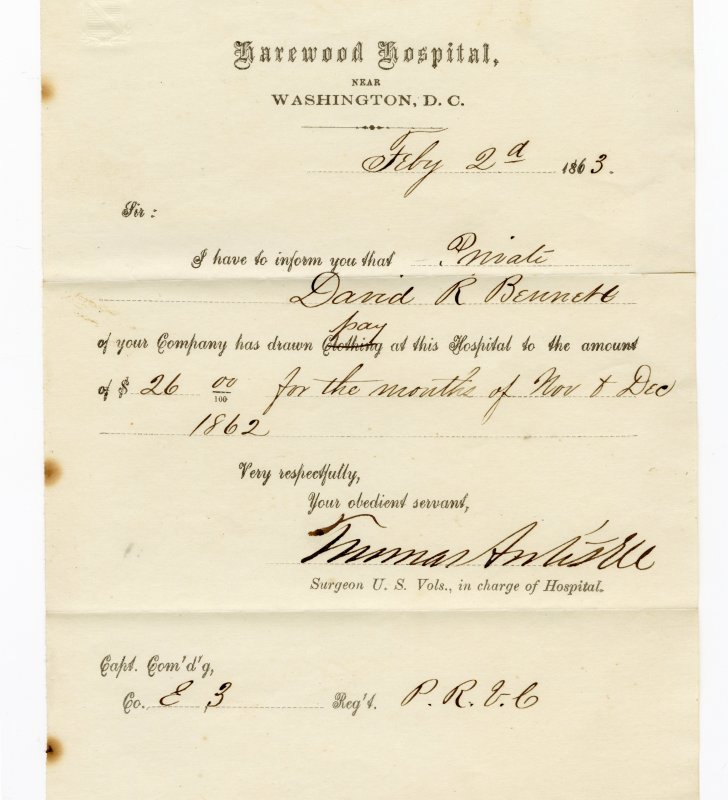 Harewood Hospital,
NEAR
WASHINGTON, D. C.
Feby 2d 1863.
Sir:
I have to inform you that Private
David R Bennett
pay
of your Company has drawn Clothing at this Hospital to the amount
of $ 26 00/100 for the months of Nov & Dec
1862
Very respectfully,
Your obedient servant,
Thomas Antisell
Surgeon U. S. Vols., in charge of Hospital.
Capt. Com'd'g,
Co. E, 3 Reg't. P. R. V. C